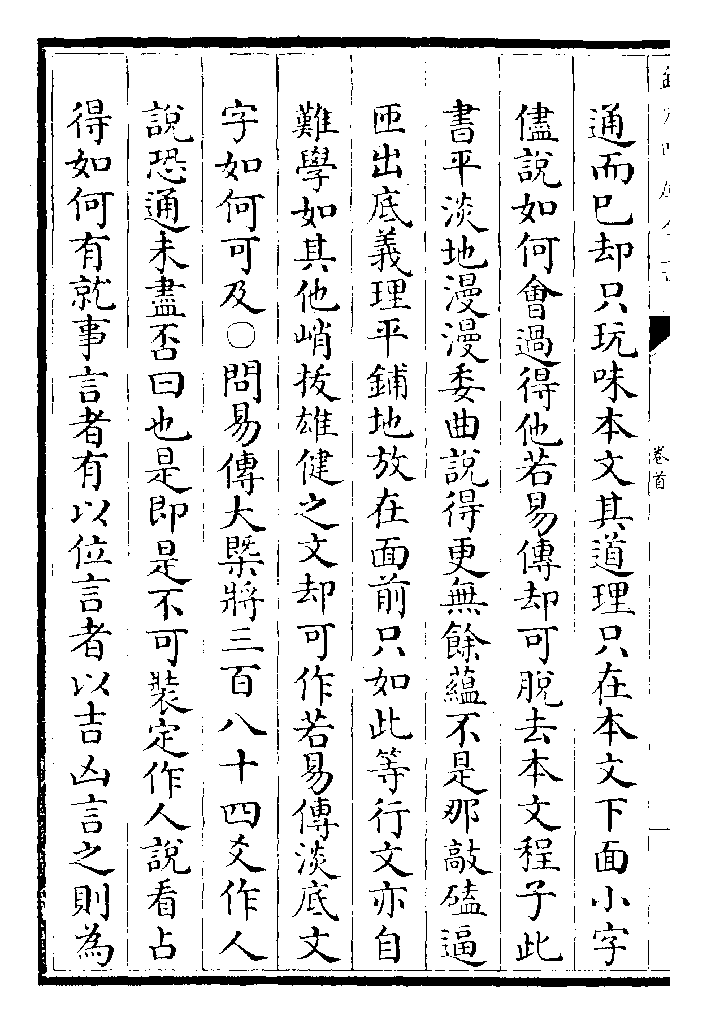 通而已却只玩味本文其道理只在本文下面小字
儘說如何會過得他若易傳却可脫去本文程子此
書平淡地漫漫委曲說得更無餘蘊不是那敲磕逼
匝出底義理平鋪地放在面前只如此等行文亦自
難學如其他峭拔雄健之文却可作若易傳淡底文
字如何可及○問易傳大槩將三百八十四爻作人
說恐通未盡否曰也是即是不可裝定作人說看占
得如何有就事言者有以位言者以吉凶言之則為
卷首